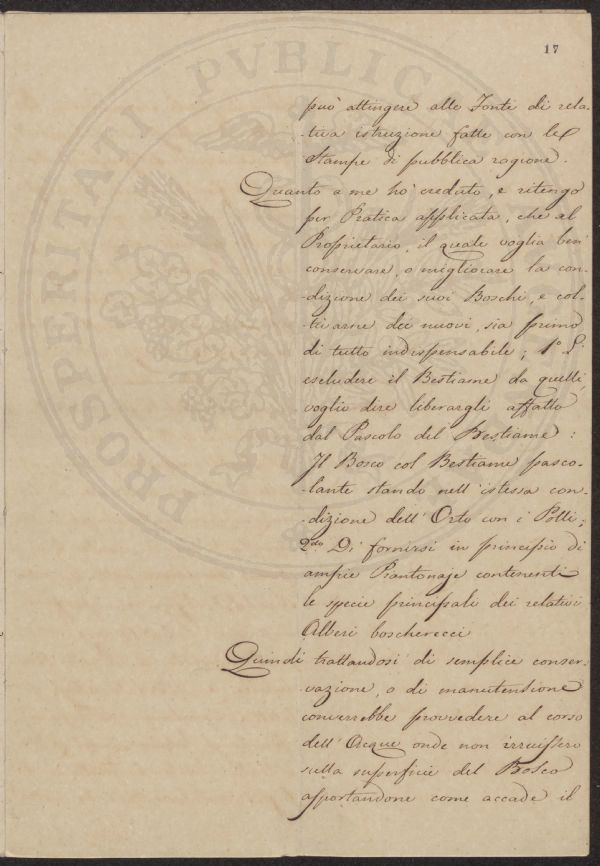 17
può attingere alle Fonti di rela-
-tiva istruzione fatte con le
Stampe di pubblica ragione.
Quanto a me hò creduto, e ritengo
per Pratica applicata, che al
Proprietario, il quale voglia ben
conservare, o migliorare la con-
-dizione dei suoi Boschi, e col-
-tivarne dei nuovi, sia primo
di tutto indispensabile; 1º D'
escludere il Bestiame da quelli,
voglio dire liberargli affatto
dal Pascolo del Bestiame:
Il Bosco col Bestiame pasco-
-lante stando nell'istessa con-
-dizione dell'Orto con i Polli;
2do Di fornirsi in principio di
ampie Piantonaje contenenti
le specie principali dei relativi
Alberi boscherecci
Quindi trattandosi di semplice conser-
-vazione, o di manutensione
converrebbe provvedere al corso
dell'Acque onde non irruissero
sulla superficie del Bosco
asportandone come accade il
PROSPERITATI PVBLICAE